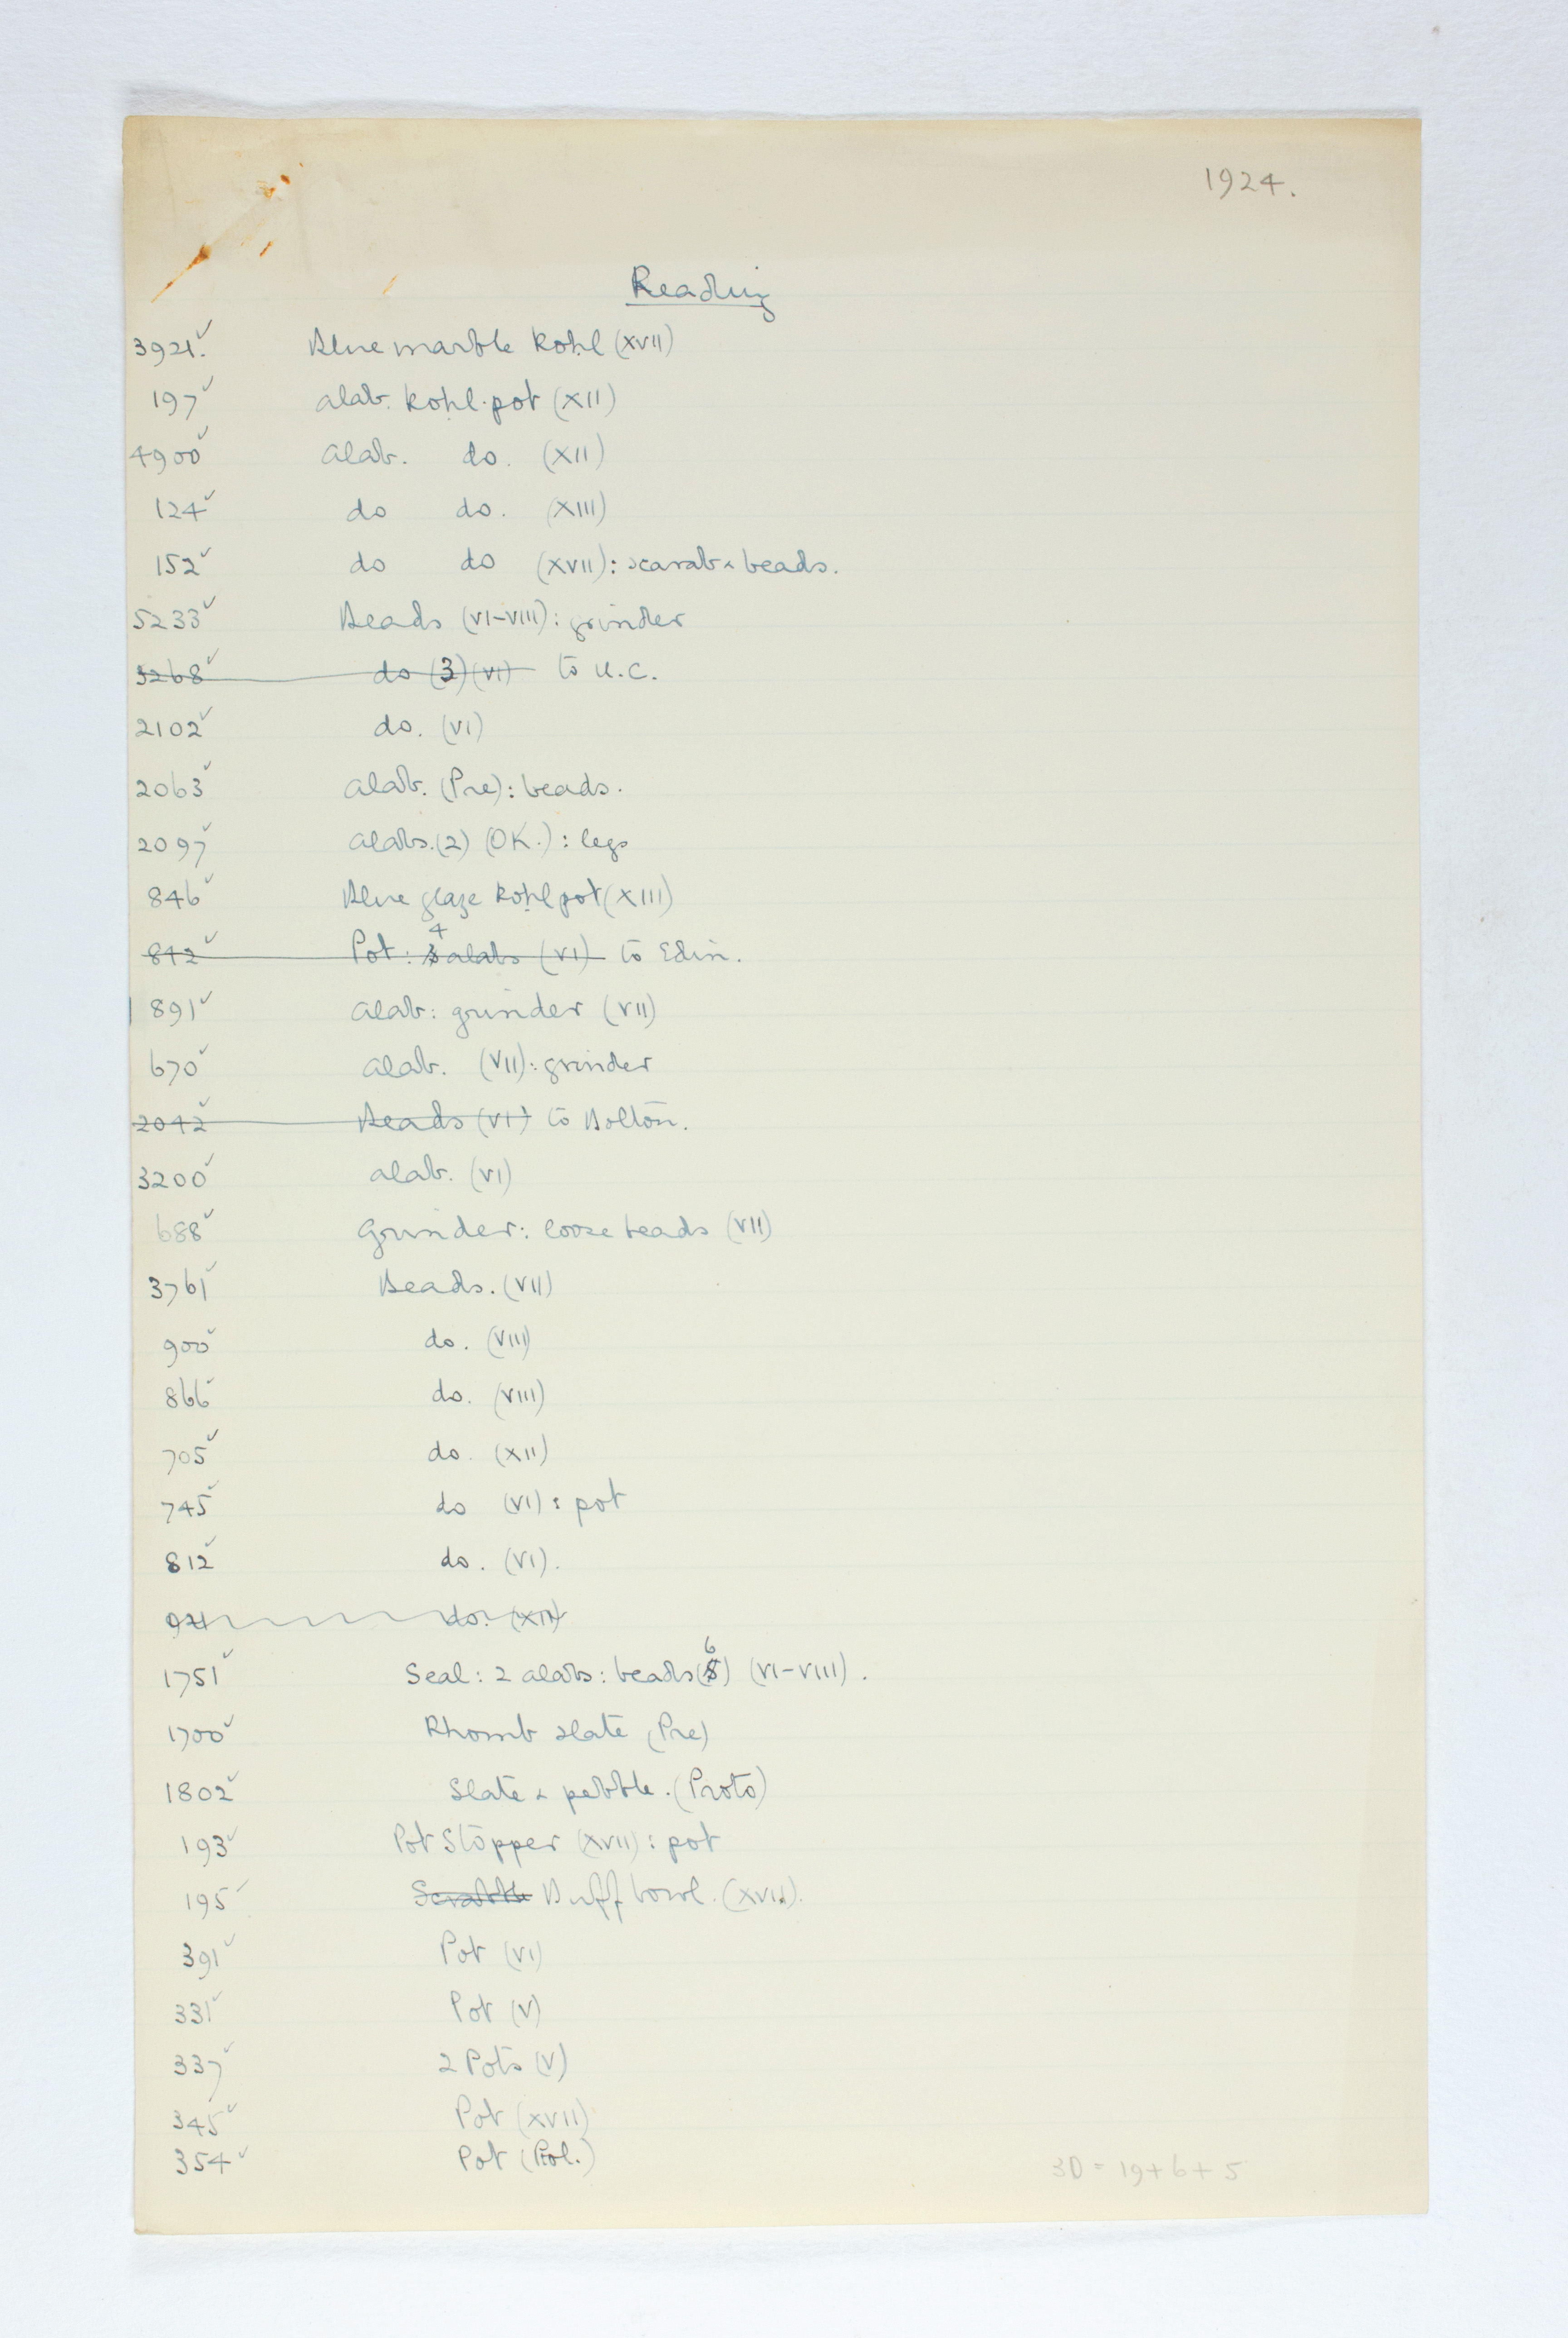 1924.
Reading
3921. ✓ Blue marble Kohl (XVII)
197 ✓ alab. Kohl-pot (XII)
4900 ✓ alab. do. (XII)
124 ✓ do do. (XIII)
152 ✓ do do (XVII): scarab & beads.
5233 ✓ Beads (VI-VIII): grinder
3268 ✓ do (3) (VI) to U.C.
2102 ✓ do. (VI)
2063 ✓ alab. (Pre): beads.
2097 ✓ alabs. (2) (OK.): legs
846 ✓ Blue glaze Kohl pot (XIII)
842 ✓ Pot: 4 alabs (VI) to Edin.
1891 ✓ alab: grinder (VII)
670 ✓ alab. (VII): grinder
2042 ✓ Beads (VI) to Bolton.
3200 ✓ alab. (VI)
688 ✓ Grinder: loose beads (VII)
3761 ✓ Beads. (VII)
900 ✓ do. (VIII)
866 ✓ do. (VIII)
705 ✓ do. (XII)
745 ✓ do (VI): pot
812 ✓ do. (VI).
921 do. (XII)
1751 ✓ Seal: 2 alabs: beads (6) (VI-VIII).
1700 ✓ Rhomb slate (Pre)
1802 ✓ Slate & pebble. (Proto)
193 ✓ Pot Stopper (XVII): pot
195 ✓ Buff bowl. (XVII).
391 ✓ Pot (VI)
331 ✓ Pot (V)
337 ✓ 2 Pots (V)
345 ✓ Pot (XVII)
354 ✓ Pot (Ptol.)
30 = 19 + 6 + 5